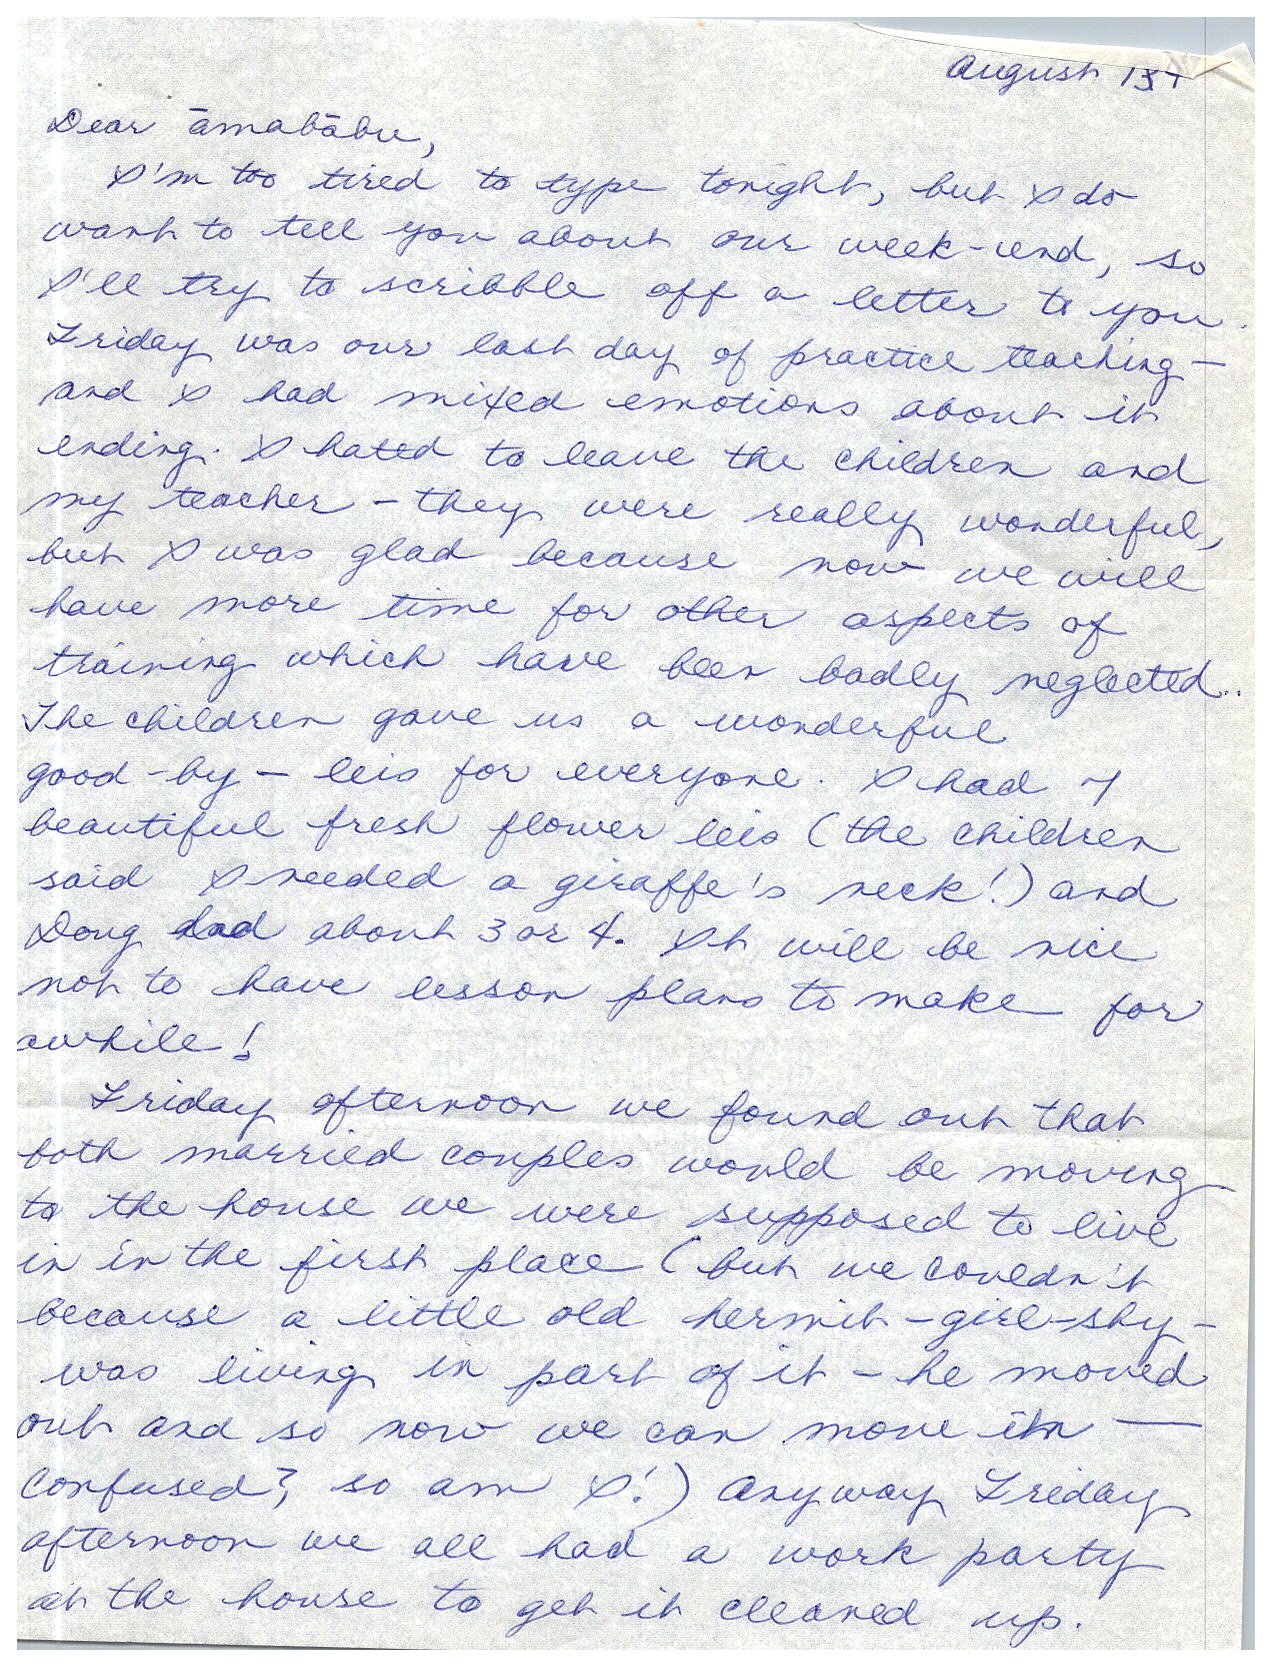 August 13
Dear āmabābu,
I'm too tired to type tonight, but I do
want to tell you about our week-end, so
I'll try to scribble off a letter to you.
Friday was our last day of practice teaching —
and I had mixed emotions about it
ending. I hated to leave the children and
my teacher — they were really wonderful,
but I was glad because now we will
have more time for other aspects of
training which have been badly neglected..
The children gave us a wonderful
good-by — leis for everyone. I had 7
beautiful fresh flower leis (the children
said I needed a giraffe's neck!) and
Doug had about 3 or 4. It will be nice
not to have lesson plans to make for
awhile!
Friday afternoon we found out that
both married couples would be moving
to the house we were supposed to live
in in the first place (but we couldn't
because a little old hermit - girl-shy -
was living in part of it - he moved
out and so now we can move in —
confused?, so am I!) Anyway Friday
afternoon we all had a work party
at the house to get it cleaned up.